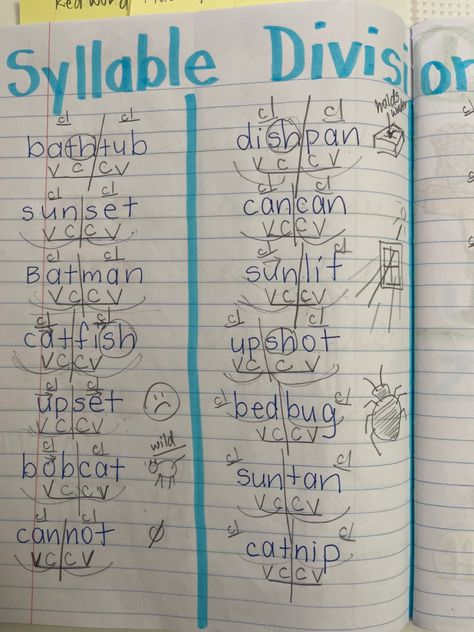 Red Word
Syllable Division
cl cl
bathtub
V C C V
cl cl
sunset
V C C V
Batman
V C C V
cl cl
catfish
V C C V
cl cl
upset
V C C V
cl cl
wild
bobcat
V C C V
cl cl
cannot
V C C V
cl cl
holds water
dishpan
V C C V
cl cl
cancan
V C C V
cl cl
sunlit
V C C V
cl cl
upshot
V C C V
cl cl
bedbug
V C C V
cl cl
suntan
V C C V
cl cl
catnip
V C C V